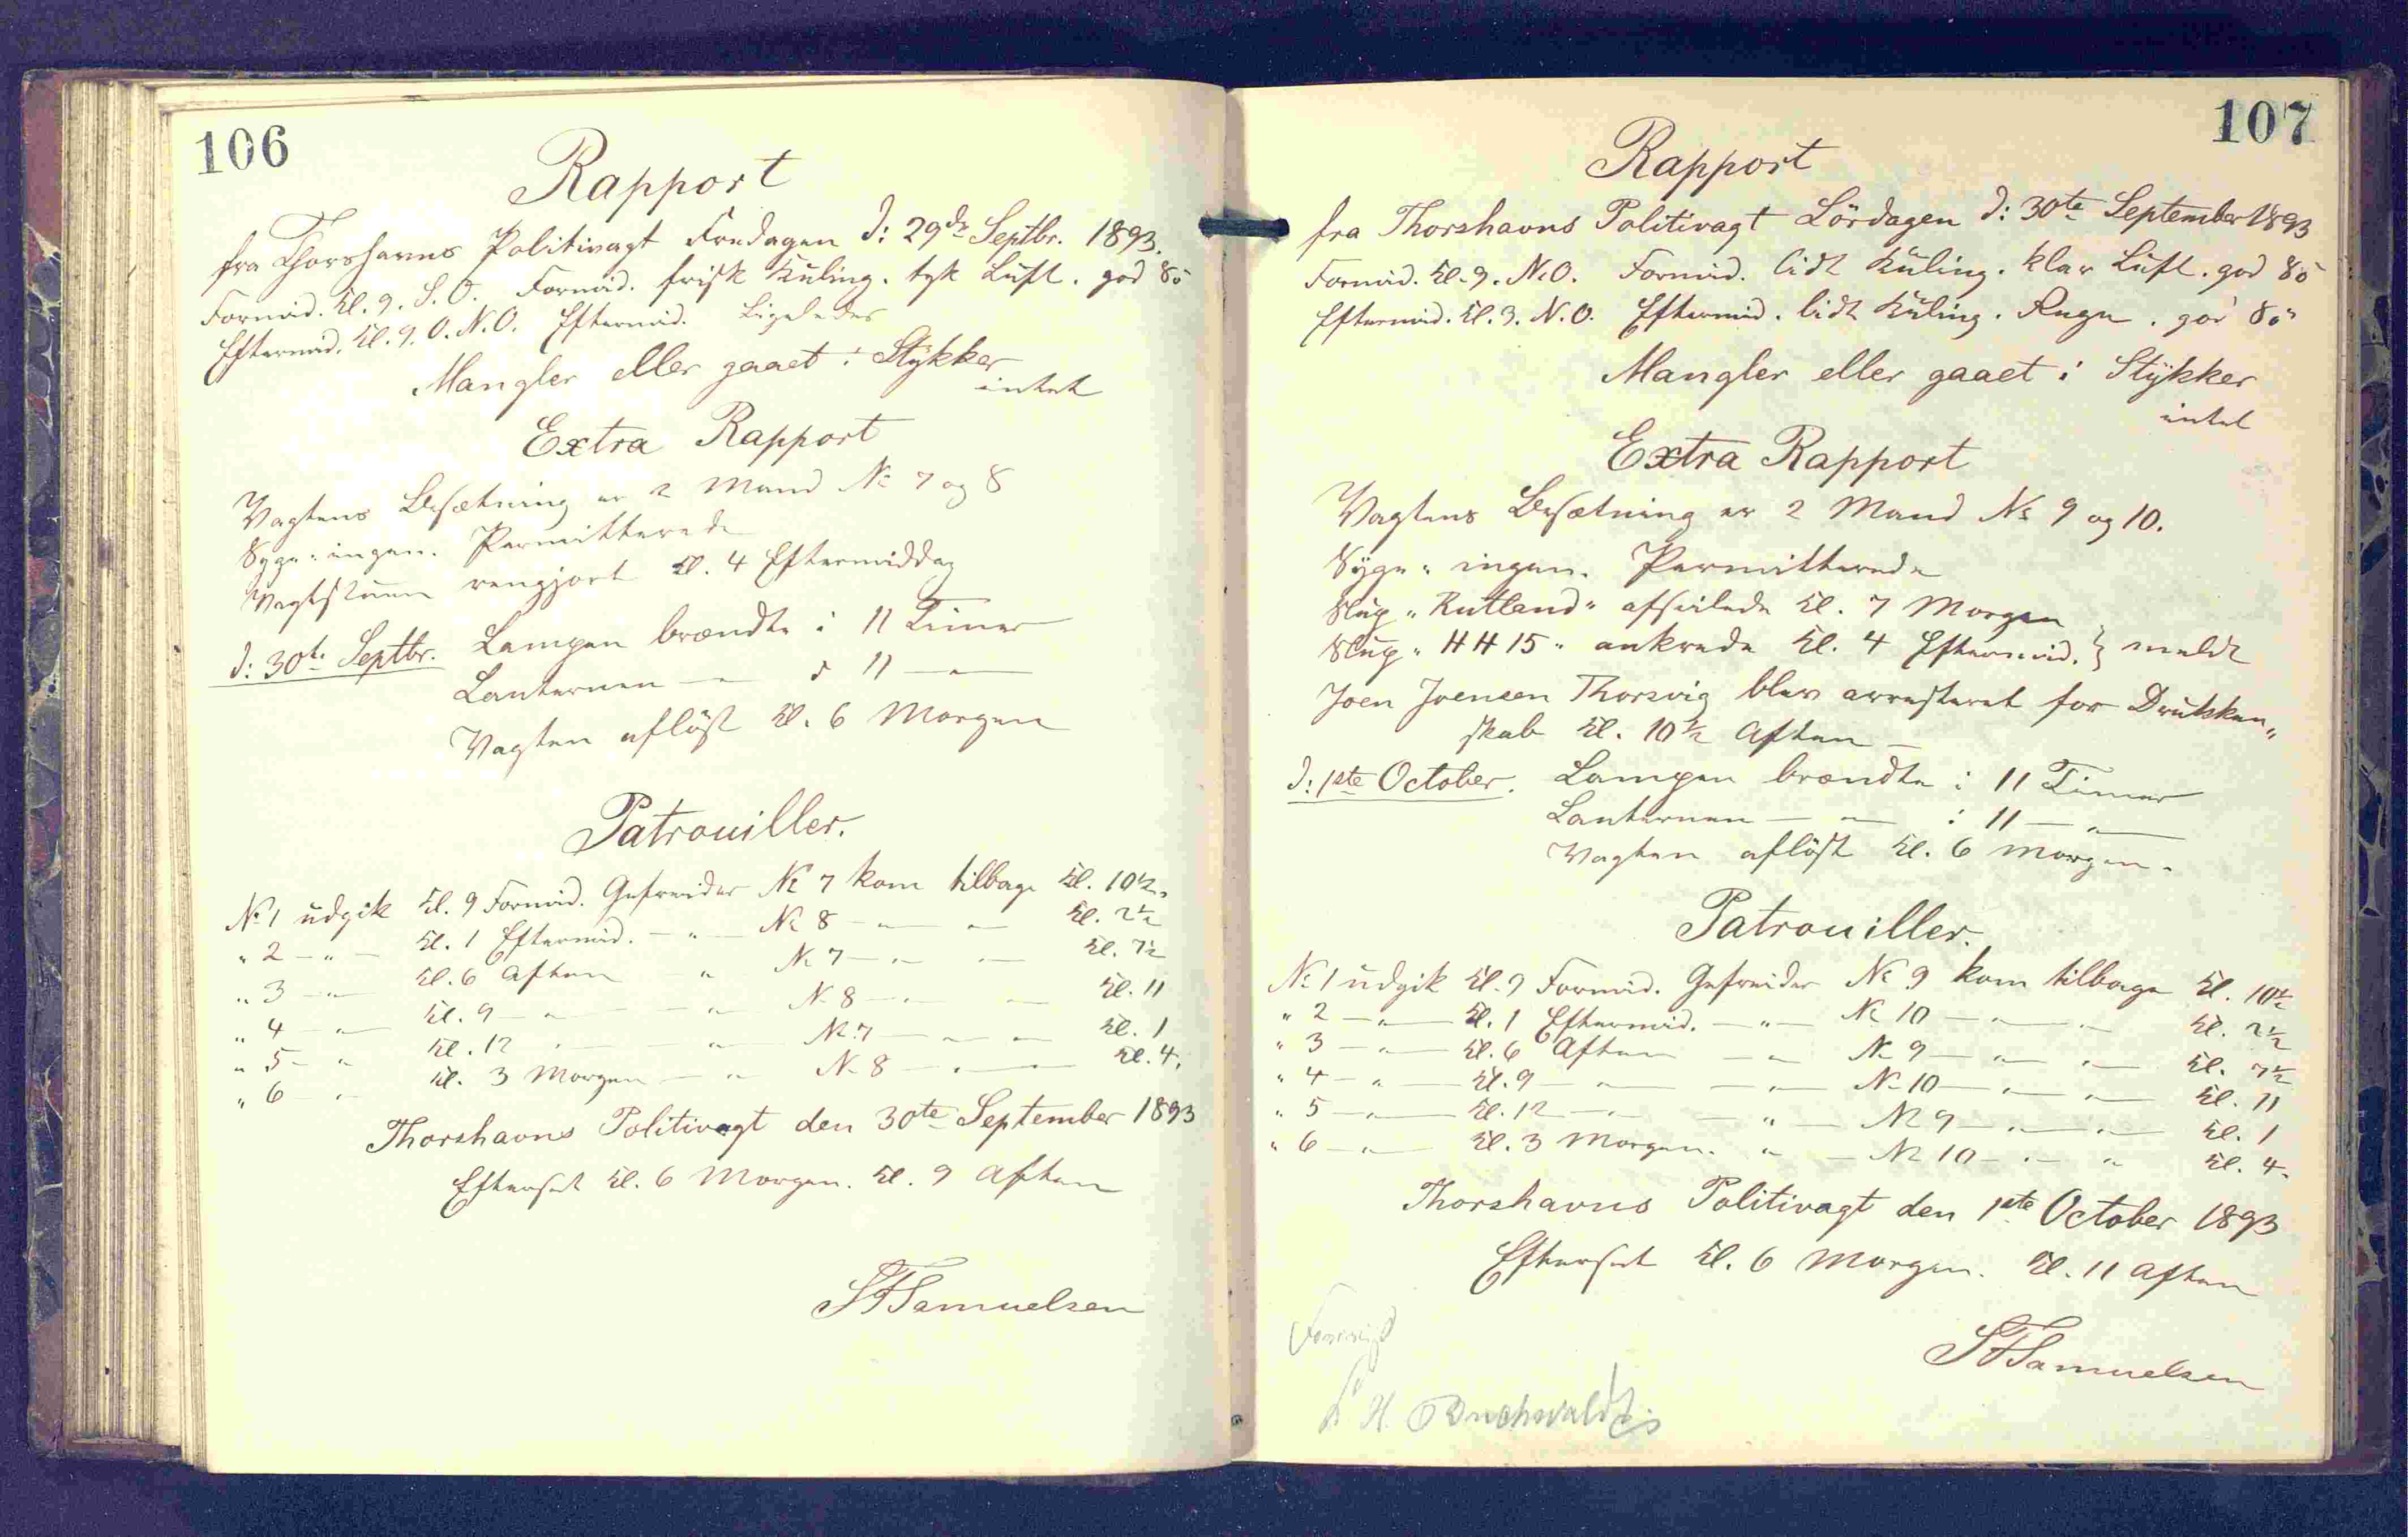 106
Rapport
fra Thorshavns Politivagt Fredagen d: 29de Septbr. 1893.
Formid. Kl. 9. S.O. Formid. frisk Kuling. tyk Luft. god Sö
Eftermid. Kl. 9. O.N.O. Eftermid. Ligeledes
Mangler eller gaaet i Stykker
intet
Extra Rapport
Vagtens Besætning er 2 Mand No 7 og 8
Syge: ingen. Permitterede
Vagtstuen rengjort Kl. 4 Eftermiddag
d: 30te Septbr. Lampen brændte i 11 Timer
Lanternen — " i 11 — " —
Vagten aflöst Kl. 6 Morgen
Patrouiller.
No 1 udgik Kl. 9 Formid. Gefreider No 7 kom tilbage Kl. 10½.
" 2 — " — Kl. 1 Eftermid. — " — No 8 — " — " — Kl. 2½
" 3 — " — Kl. 6 Aften " No 7 — " — " — Kl. 7½
" 4 — " — Kl. 9 — " — — " No 8 — " — " — Kl. 11
" 5 — " Kl. 12 " — — " — No 7 — " — " — Kl. 1
" 6 — " Kl. 3 Morgen — " No 8 — " — " — Kl. 4.
Thorshavns Politivagt den 30te September 1893
Efterset Kl. 6 Morgen. Kl. 9 Aften
Samuelsen
107
Rapport
fra Thorshavns Politivagt Lördagen d: 30te September 1893
Formid. Kl. 9. N.O. Formid. lidt Kuling. klar Luft. god Sö
Eftermid. Kl. 3. N.O. Eftermid. lidt Kuling. Regn. god Sö
Mangler eller gaaet i Stykker
intet
Extra Rapport
Vagtens Besætning er 2 Mand No 9 og 10.
Syge: ingen. Permitterede
Slup "Rutland" afseilede Kl. 7 Morgen
Slup "HH15" ankrede Kl. 4 Eftermid. } meldt
Joen Joensen Thorsvig blev arresteret for Drukken"
skab Kl. 10½ Aften —
d: 1ste October. Lampen brændte i 11 Timer
Lanternen — " — i 11 — " —
Vagten aflöst Kl. 6 Morgen.
Patrouiller.
No 1 udgik Kl. 9 Formid. Gefreider No 9 kom tilbage Kl. 10½
" 2 — " — Kl. 1 Eftermid. — " — No 10 — " — " Kl. 2½
" 3 — " — Kl. 6 Aften — " No 9 — " — " — Kl. 7½
" 4 — " — Kl. 9 — " — — " — No 10 — " — " — Kl. 11
" 5 — " — Kl. 12 — " — " — No 9 — " — " — Kl. 1
" 6 — " — Kl. 3 Morgen. " — No 10 — " — " Kl. 4.
Thorshavns Politivagt den 1ste October 1893
Efterset Kl. 6 Morgen. Kl. 11 Aften
Samuelsen
H. Buchwaldt